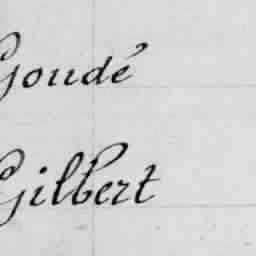 Goudé
Gilbert